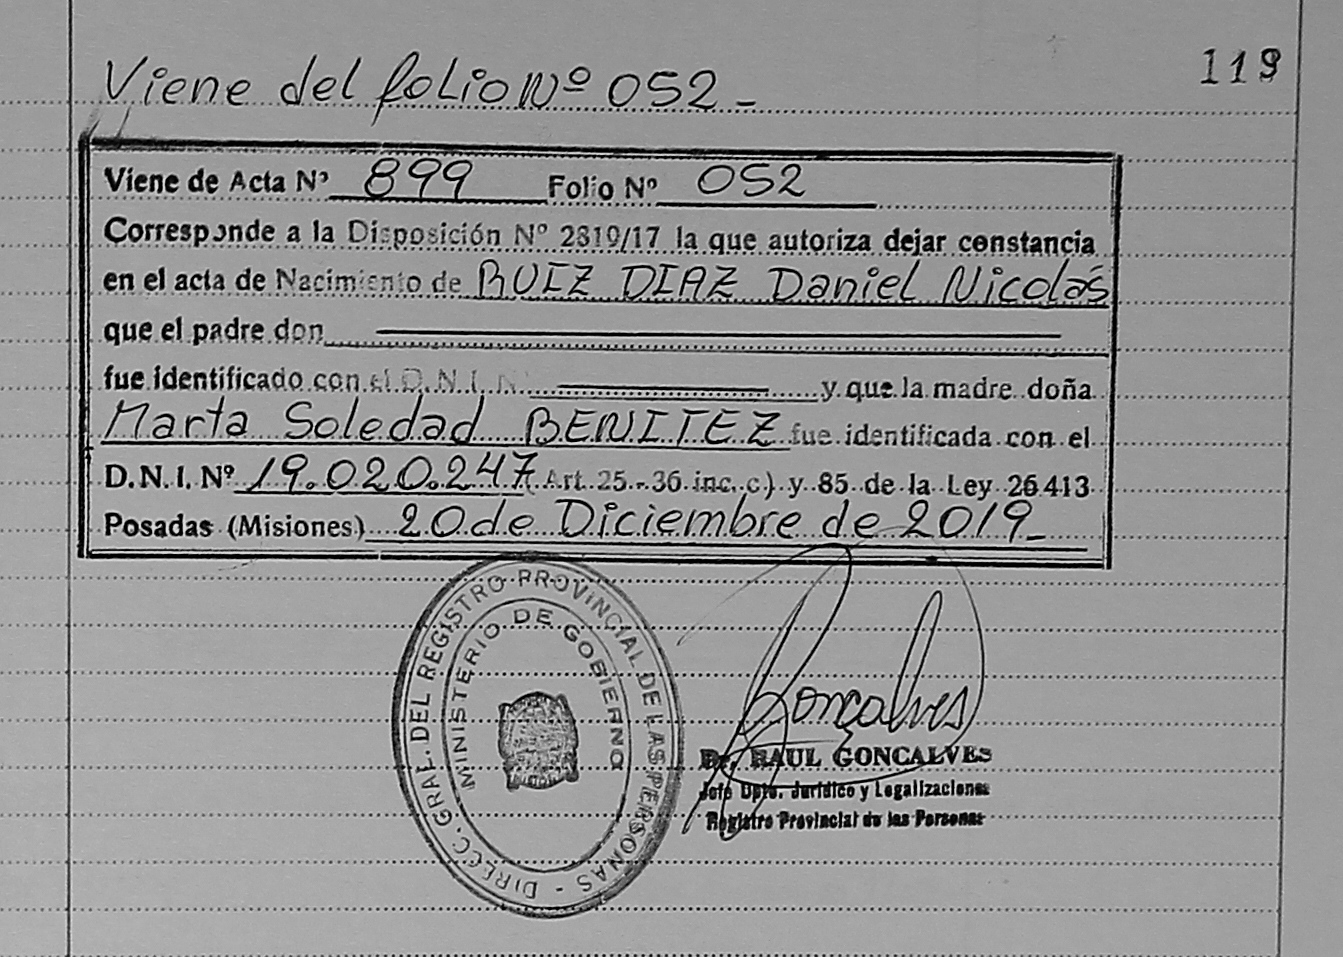 119
Viene del folio Nº 052 -
Viene de Acta Nº 899 Folio Nº 052
Corresponde a la Disposición Nº 2819/17 la que autoriza dejar constancia
en el acta de Nacimiento de RUIZ DIAZ Daniel Nicolás
que el padre don
fue identificado con el D.N.I. Nº y que la madre doña
Marta Soledad BENITEZ fue identificada con el
D.N.I. Nº 19.020.247 (Art. 25.-36 inc. c.) y 85 de la Ley 26413
Posadas (Misiones) 20 de Diciembre de 2019_
DIRECC. GRAL. DEL REGISTRO PROVINCIAL DE LAS PERSONAS -
MINISTERIO DE GOBIERNO
Gonçalves
Dr. RAUL GONCALVES
Jefe Dpto. Jurídico y Legalizaciones
Registro Provincial de las Personas